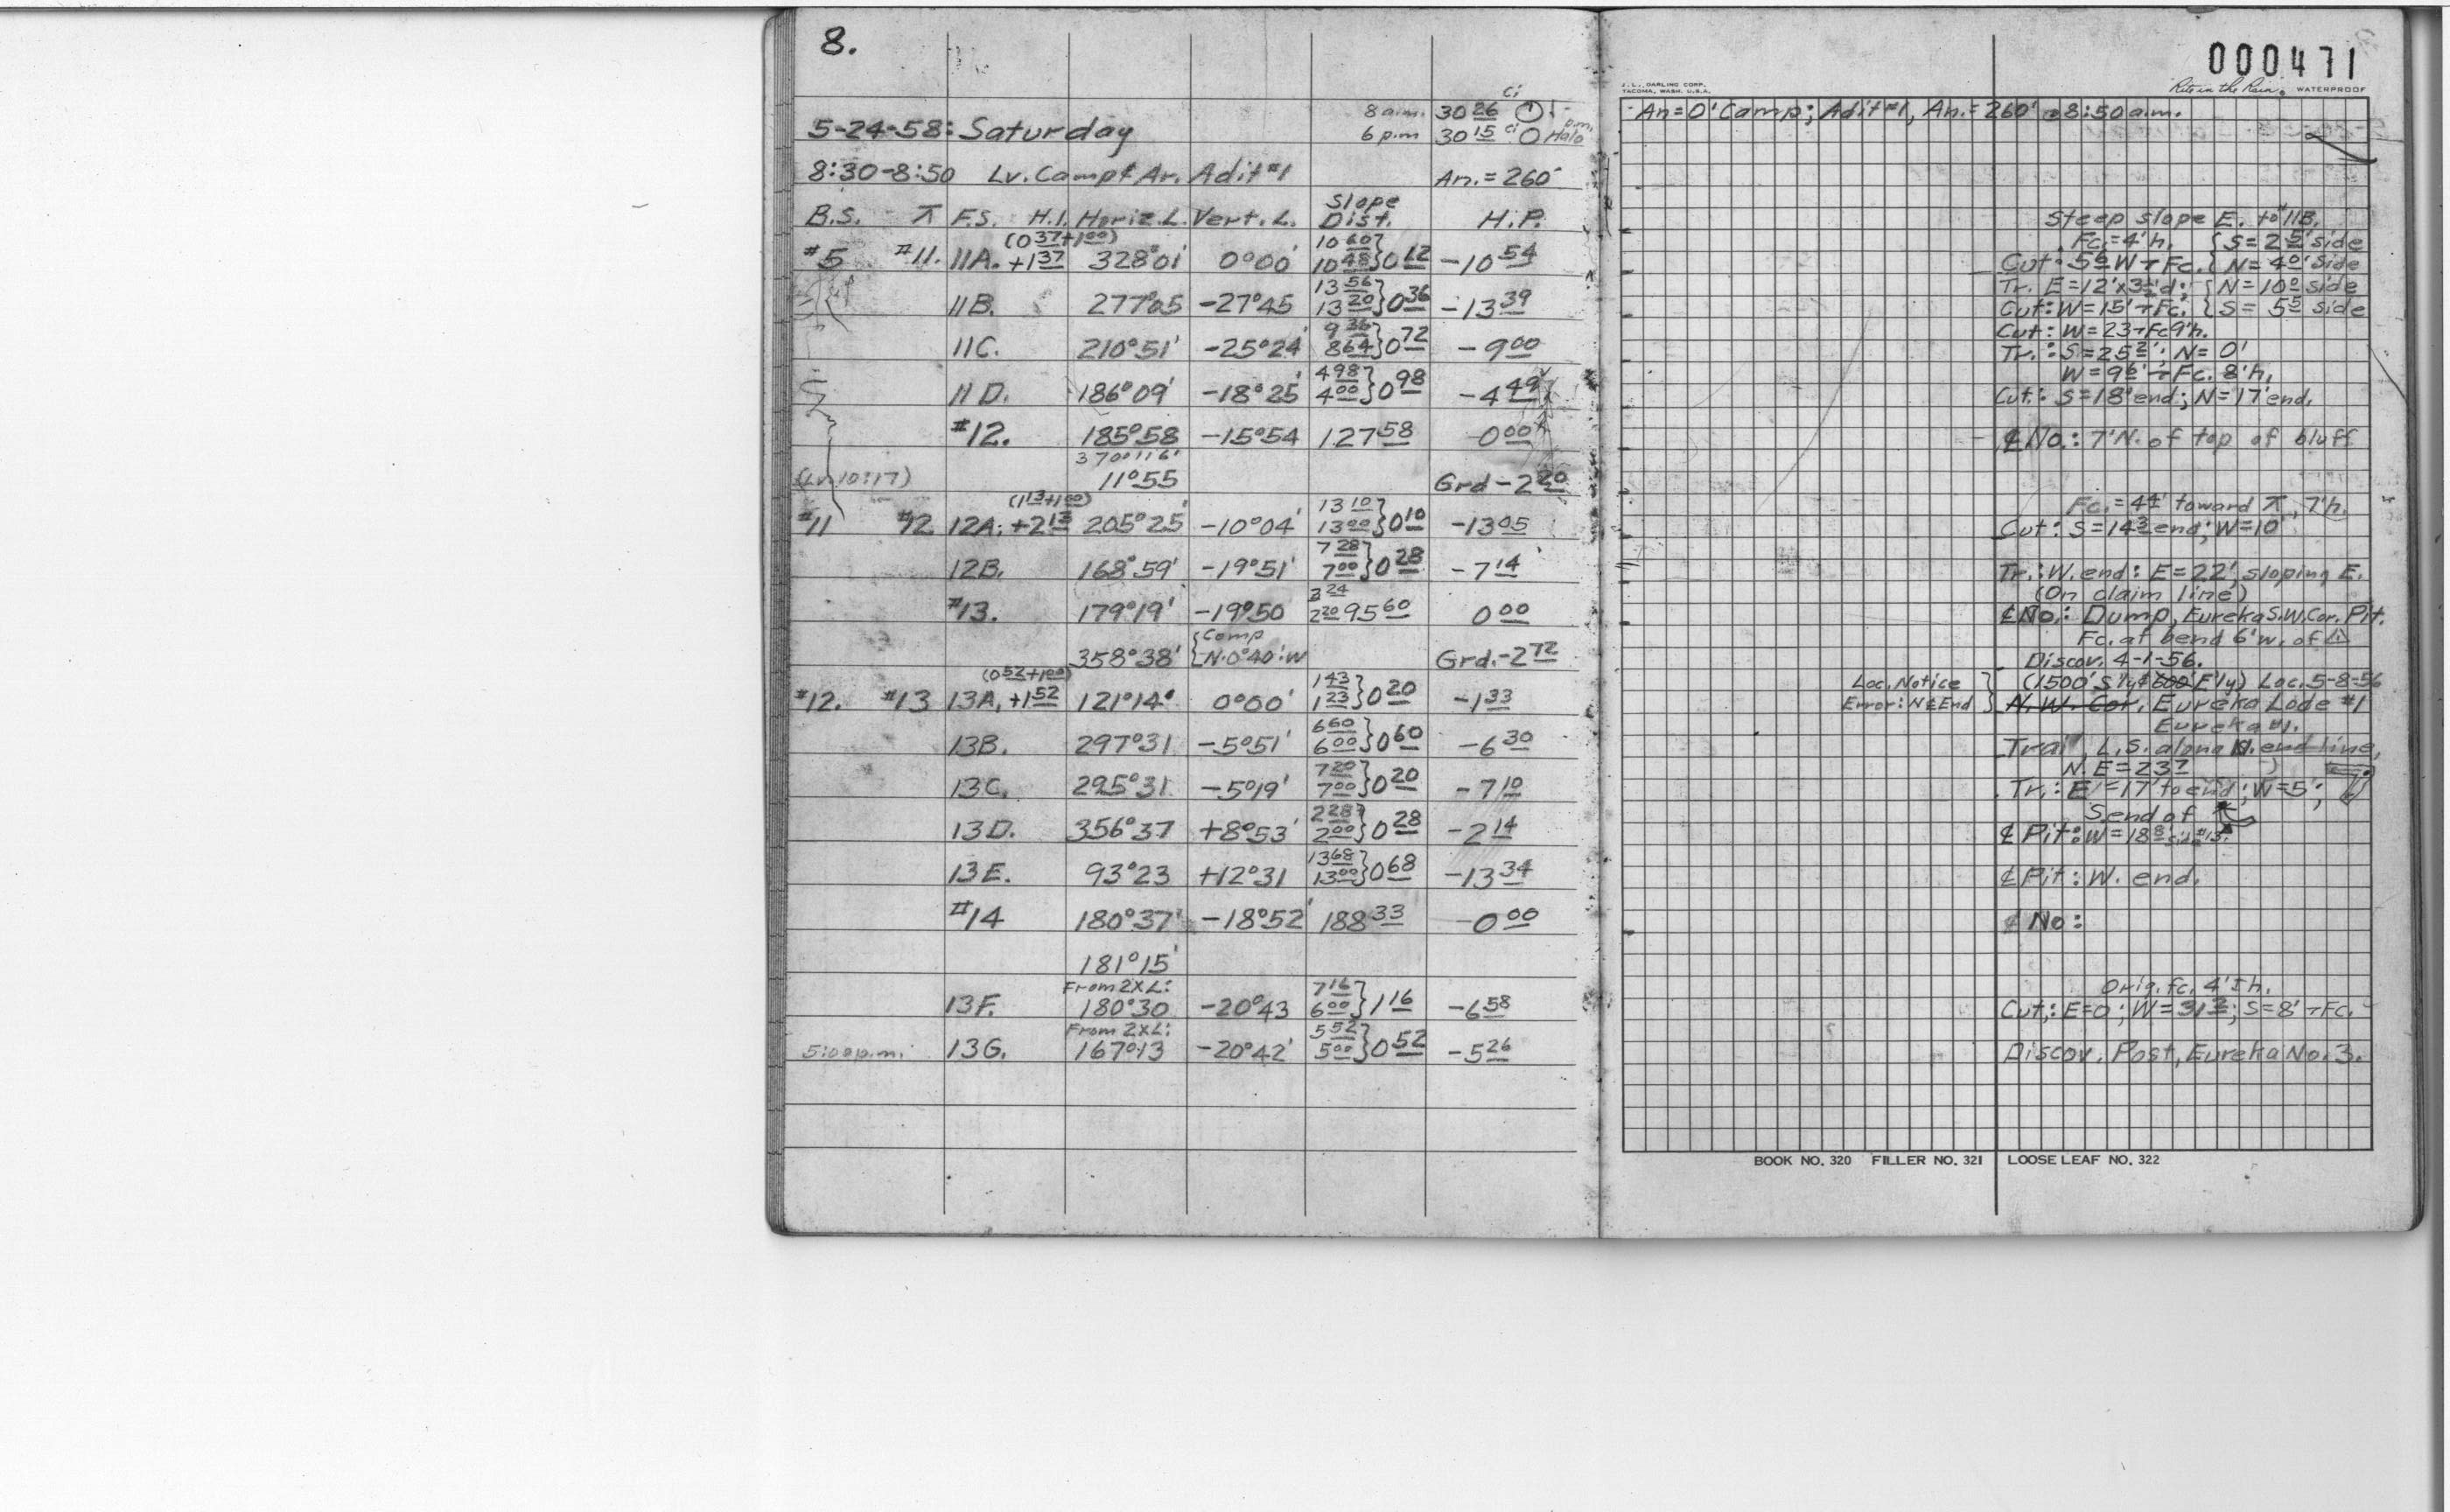 8.
8 a.m. 30 26 Ci
5-24-58: Saturday 6 p.m 30 15 Ci Halo p.m.
8:30-8:50 Lv. Camp & Ar. Adit #1 An. = 260'
B.S. ⊼ F.S. H.I. Horiz. L. Vert. L. Slope Dist. H.P.
(0 37+1 00)
#5 #11. 11A. +1 37 328°01' 0°00' 10 60 10 48 } 0 12 -10 54
11B. 277°05 -27°45 13 56 13 20 } 0 36 -13 39
11C. 210°51' -25°24' 9 36 8 64 } 0 72 -9 00
11D. 186°09' -18°25' 4 98 4 00 } 0 98 -4 49
#12. 185°58 -15°54 127 58 0 00
370°116'
(Lv. 10:17) 11°55 Grd -2 20
(1 13+1 00)
#11 #12 12A. +2 13 205°25' -10°04' 13 10 13 00 } 0 10 -13 05
12B. 168°59' -19°51' 7 28 7 00 } 0 28 -7 14
#13. 179°19' -19°50 3 24 2 20 95 60 0 00
358°38' { Comp N. 0°40' W Grd. -2 72
(0 52+1 00)
#12. #13 13A. +1 52 121°14' 0°00' 1 43 1 23 } 0 20 -1 33
13B. 297°31 -5°51' 6 60 6 00 } 0 60 -6 30
13C. 295°31 -5°19' 7 20 7 00 } 0 20 -7 10
13D. 356°37 +8°53' 2 28 2 00 } 0 28 -2 14
13E. 93°23 +12°31 13 68 13 00 } 0 68 -13 34
#14 180°37' -18°52' 188 33 -0 00
181°15'
From 2XL:
13F. 180°30 -20°43 7 16 6 00 } 1 16 -6 58
From 2XL:
5:00 p.m. 13G. 167°13 -20°42' 5 52 5 00 } 0 52 -5 26
000471
J. L. DARLING CORP.
TACOMA, WASH. U.S.A.
Rite in the Rain. WATERPROOF
An=0' Camp; Adit #1, An.=260' @ 8:50 a.m.
Steep slope E. to #11B.
Fc.=4'h. { S=2 5' side
Cut: 5 6 W → Fc. { N=4 0' side
Tr. E=12'x3 5'd: { N=10 0 side
Cut: W=15' → Fc. { S= 5 5 side
Cut: W=23 → Fc 9'h.
Tr.: S=25 2'; N=0'
W=9 6' → Fc. 8'h.
Cut.: S=18' end; N=17' end.
℄ No.: 7'N. of top of bluff
Fc.=4 4' toward ⊼, 7'h.
Cut: S=14 3 end; W=10'
Tr.: W. end: E=22', sloping E.
(On claim line)
℄ No.: Dump, Eureka S.W. Cor. Pit.
Fc. at bend 6'w. of △
Discov. 4-1-56.
Loc. Notice (1500' S'ly & 600' E'ly) Loc. 5-8-56
Error: N & End } N. W. Cor, Eureka Lode #1
Eureka #1.
Trail, L.S. along N. end line,
N.E=23 7
Tr.: E=17' to end; W=5';
S. end of
℄ Pit: W=18 8 side #13.
℄ Pit: W. end.
℄ No:
Orig. fc. 4'± h.
Cut,: E=0'; W=31 2; S=8' → Fc.
Discov. Post, Eureka No. 3.
BOOK NO. 320 FILLER NO. 321 LOOSE LEAF NO. 322